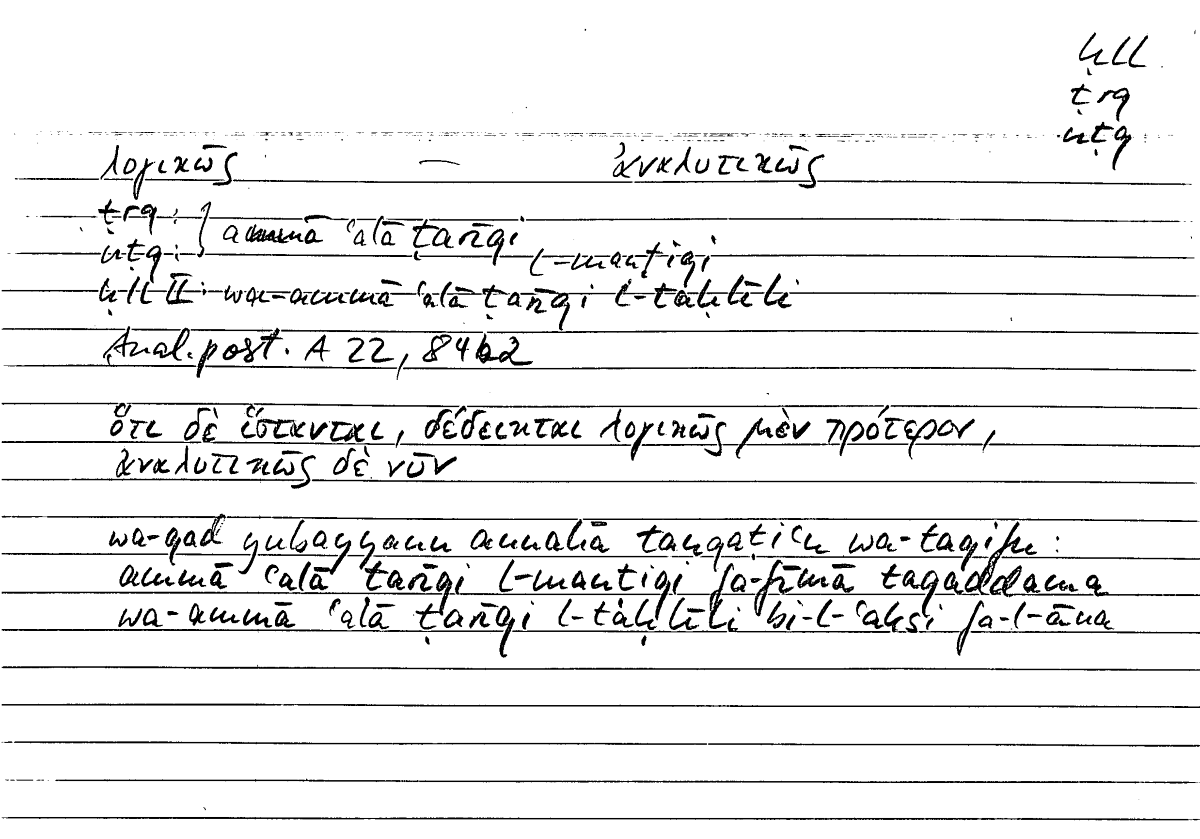 ḥll
ṭrq
nṭq
λογικῶς — ἀναλυτικῶς
ṭrq: } ammā ʿalā ṭarīqi
nṭq: l-manṭiqi
ḥll II: wa-ammā ʿalā ṭarīqi l-taḥlīli
Anal. post. A 22, 84b2
ὅτι δὲ ἵστανται, δέδεικται λογικῶς μὲν πρότερον,
ἀναλυτικῶς δὲ νῦν
wa-qad yubayyanu annahā tanqaṭiʿu wa-taqifu:
ammā ʿalā ṭarīqi l-manṭiqi fa-fīmā taqaddama
wa-ammā ʿalā ṭarīqi l-taḥlīli bi-l-ʿaksi fa-l-āna